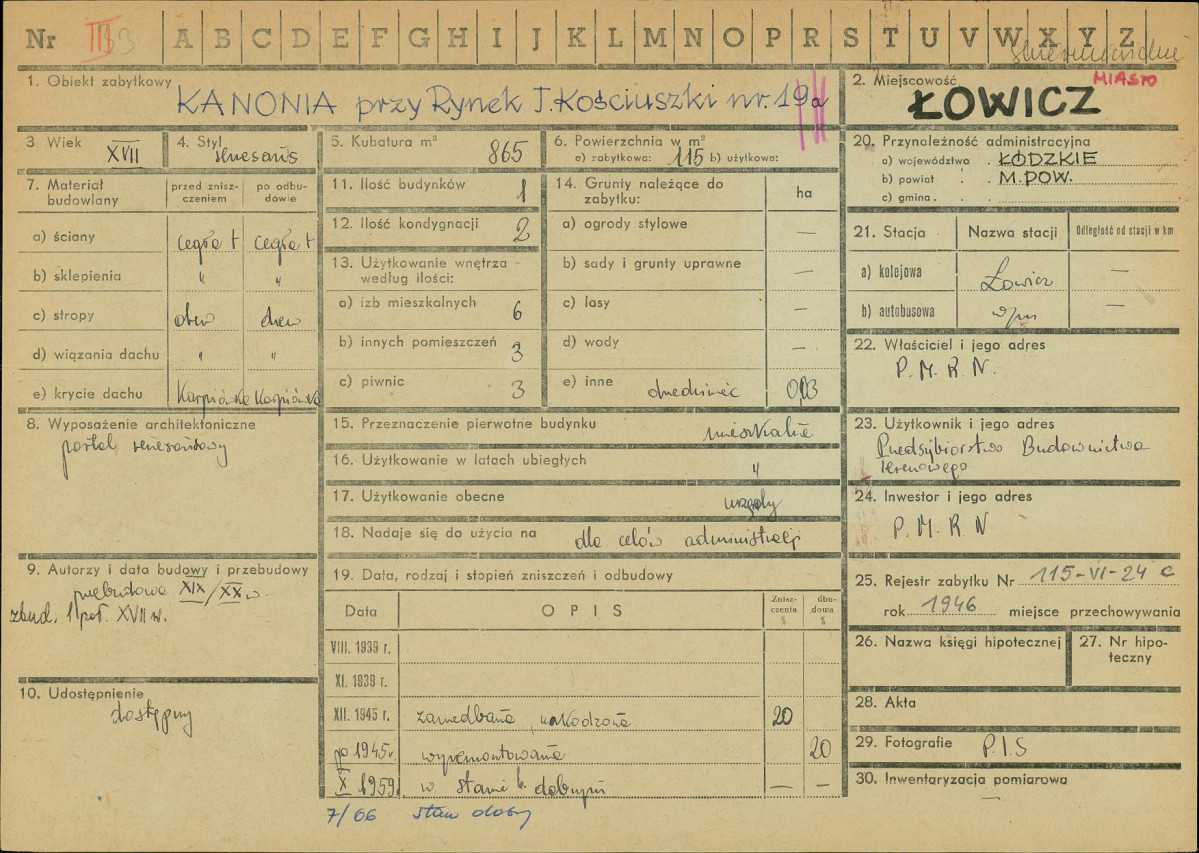 Nr III
A B C D E F G H I J K L M N O P R S T U V W X Y Z
1. Obiekt zabytkowy
KANONIA przy Rynek T. Kościuszki nr. 19a
2. Miejscowość
MIASTO
ŁOWICZ
3. Wiek
XVII
4. Styl
renesans
5. Kubatura m³
865
6. Powierzchnia w m²
a) zabytkowa: 115 b) użytkowa:
7. Materiał budowlany
przed zniszczeniem
po odbudowie
a) ściany cegła t cegła t
b) sklepienia " "
c) stropy drew drew
d) wiązania dachu " "
e) krycie dachu Karpiówka Karpiówka
8. Wyposażenie architektoniczne
portal renesansowy
9. Autorzy i data budowy i przebudowy
przebudowa XIX/XX w.
zbud. 1 poł. XVII w.
10. Udostępnienie
dostępny
11. Ilość budynków 1
12. Ilość kondygnacji 2
13. Użytkowanie wnętrza według ilości:
a) izb mieszkalnych 6
b) innych pomieszczeń 3
c) piwnic 3
14. Grunty należące do zabytku:
ha
a) ogrody stylowe —
b) sady i grunty uprawne —
c) lasy —
d) wody —
e) inne dziedziniec 0,03
15. Przeznaczenie pierwotne budynku mieszkalne
16. Użytkowanie w latach ubiegłych "
17. Użytkowanie obecne urzędy
18. Nadaje się do użycia na dla celów administracji
19. Data, rodzaj i stopień zniszczeń i odbudowy
Data
OPIS
Zniszczenia %
dbudowa %
VIII. 1939 r.
XI. 1939 r.
XII. 1945 r. zaniedbana, uszkodzona 20
po 1945 r. wyremontowana 20
X 1959. w stanie b. dobrym — —
7/66 stan dobry
20. Przynależność administracyjna
a) województwo ŁÓDZKIE
b) powiat M. POW.
c) gmina
21. Stacja
Nazwa stacji
Odległość od stacji w km
a) kolejowa Łowicz —
b) autobusowa —
22. Właściciel i jego adres
P. M. R. N.
23. Użytkownik i jego adres
Przedsiębiorstwo Budownictwa
Terenowego
24. Inwestor i jego adres
P. M. R. N
25. Rejestr zabytku Nr 115-VI-24 c
rok 1946 miejsce przechowywania
26. Nazwa księgi hipotecznej
27. Nr hipoteczny
28. Akta
29. Fotografie P.I.S
30. Inwentaryzacja pomiarowa
—